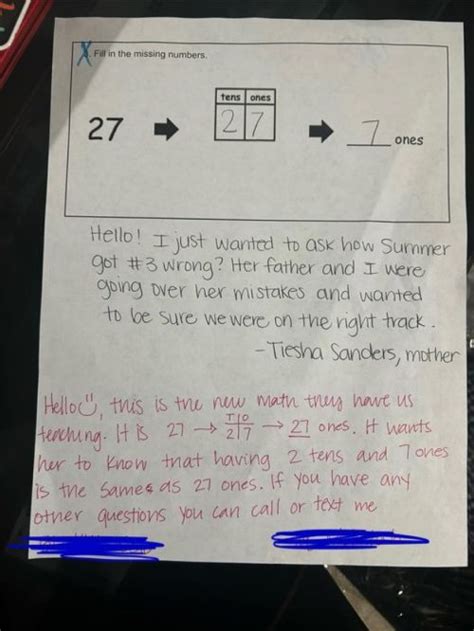 Fill in the missing numbers.
tens ones
27 → 2 7 → 7 ones
Hello! I just wanted to ask how Summer
got #3 wrong? Her father and I were
going over her mistakes and wanted
to be sure we were on the right track.
- Tiesha Sanders, mother
Hello☺, this is the new math they have us
teaching. It is 27 → T|O 2|7 → 27 ones. It wants
her to know that having 2 tens and 7 ones
is the same as 27 ones. If you have any
other questions you can call or text me